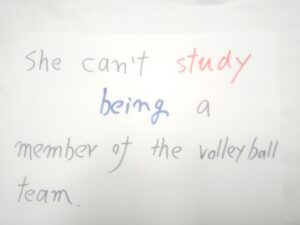 She can't study
being a
member of the volleyball
team.